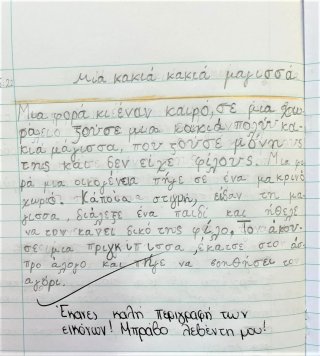 Μία κακιά κακιά μαγισσά
Μια φορά κι έναν καιρό, σε μια χω
ριό ζούσε μια κακιά πολύ κα
κιά μάγισσα, που ζούσε μόνη
της και δεν είχε φίλους. Μια φο
ρά μια οικογένεια πήγε σε ένα μακρινό
χωριό. Κάποια στιγμή, είδαν τη μα
γισσα, διάλεξε ένα παιδί και ήθελε
να τον κάνει δικό της φίλο. Το άκου
σε μια πριγκίπισσα, έκατσε στο άσ
προ άλογο και πήγε να βοηθήσει το
αγόρι.
Έκανες καλή περιγραφή των
εικόνων! Μπράβο λεβέντη μου!